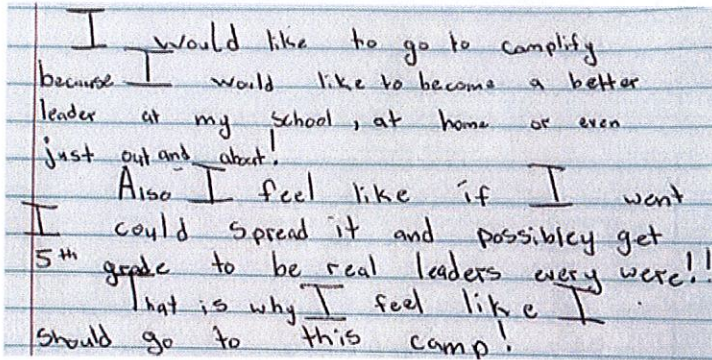 I would like to go to camplify
because I would like to become a better
leader at my school, at home or even
just out and about!
Also I feel like if I went
I could spread it and possibley get
5th grade to be real leaders every were!!
That is why I feel like I
should go to this camp!